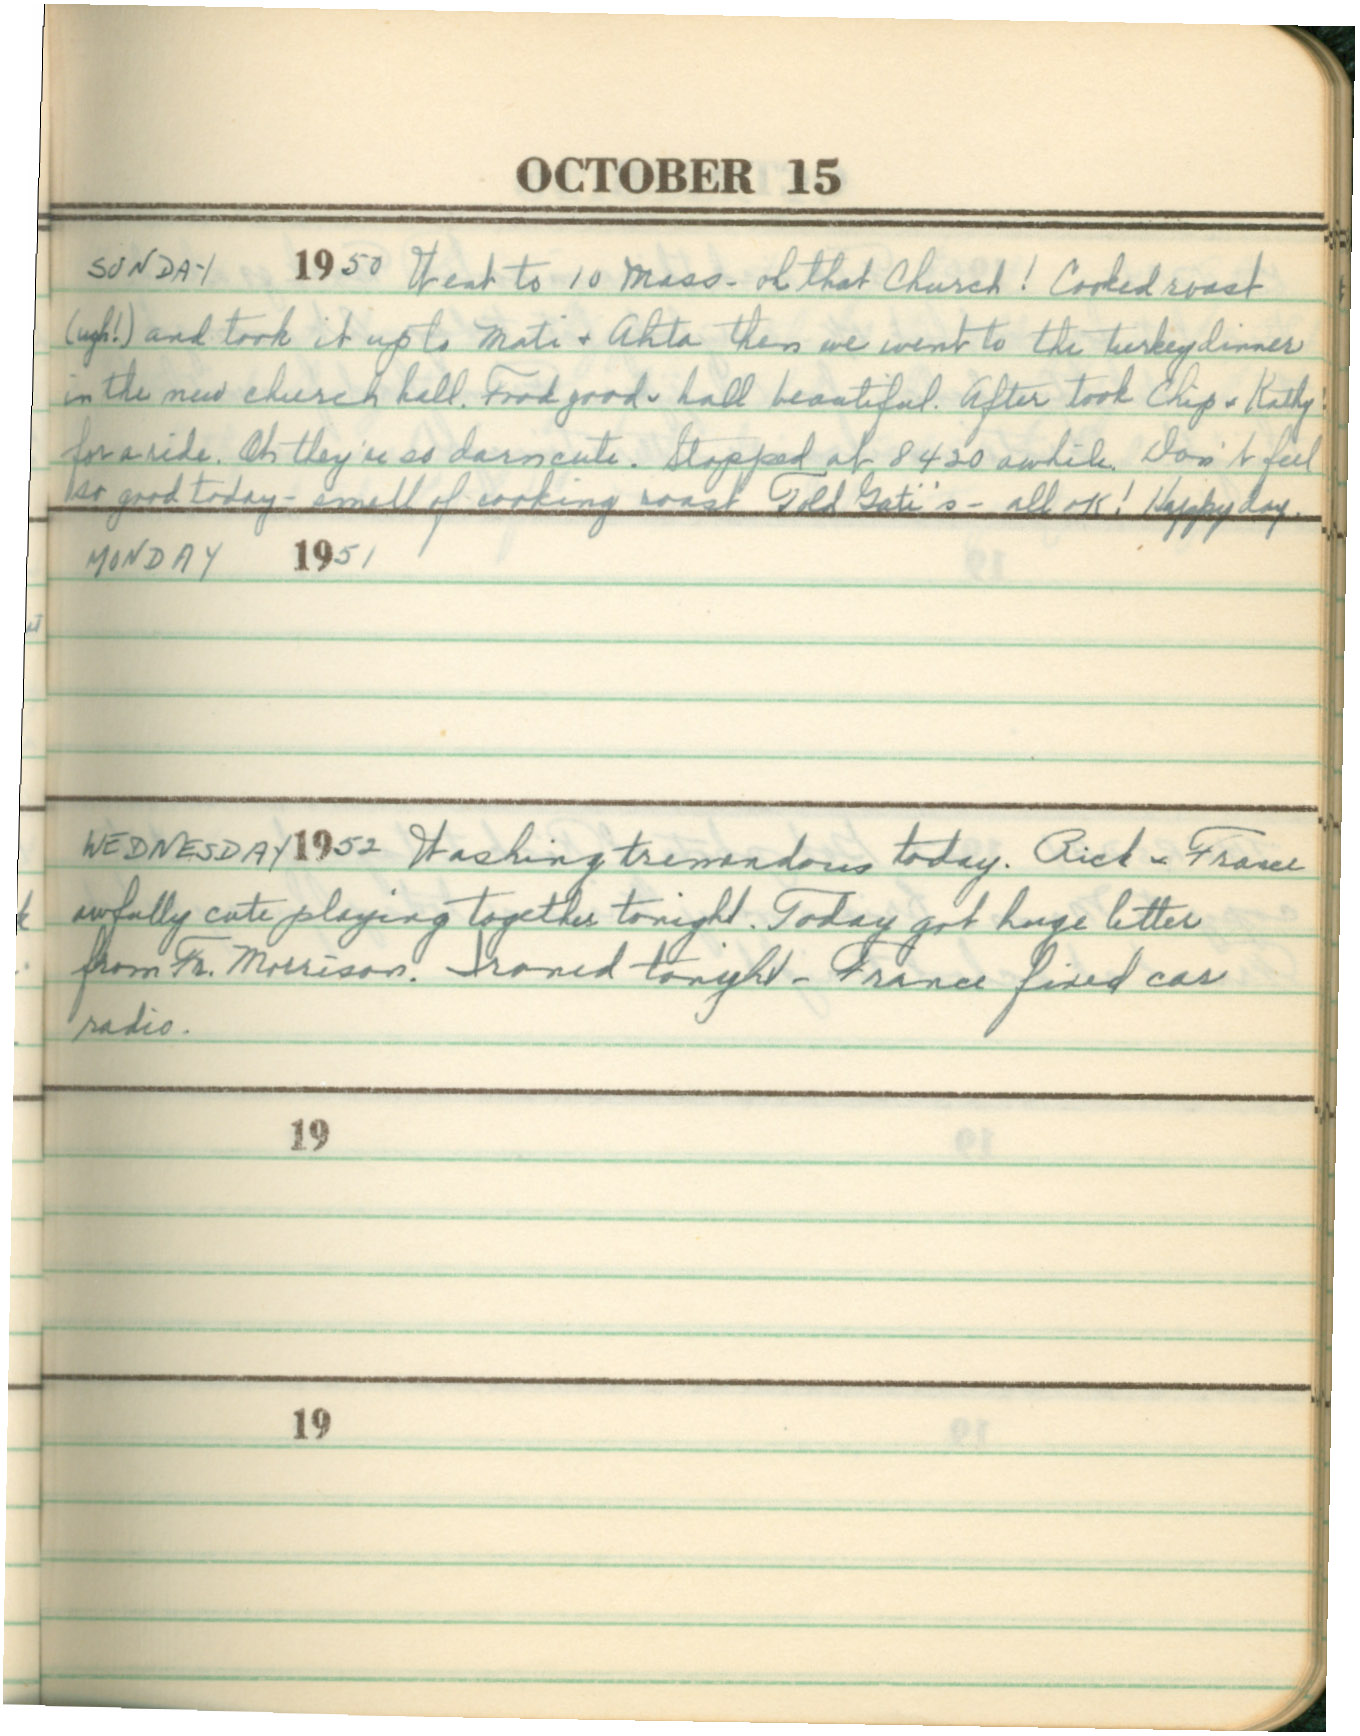 OCTOBER 15
SUNDAY 1950 Went to 10 Mass - oh that Church! Cooked roast
(ugh!) and took it up to Mati + Ahta then we went to the turkey dinner
in the new church hall. Food good + hall beautiful. After took Chip + Kathy
for a ride. Oh they're so darn cute. Stopped at 8420 awhile. Don't feel
so good today - smell of cooking roast Told Gati's - all OK! Happy day.
MONDAY 1951
WEDNESDAY 1952 Washing tremendous today. Rick + France
awfully cute playing together tonight. Today got huge letter
from Fr. Morrison. Ironed tonight - France fixed car
radio.
19
19